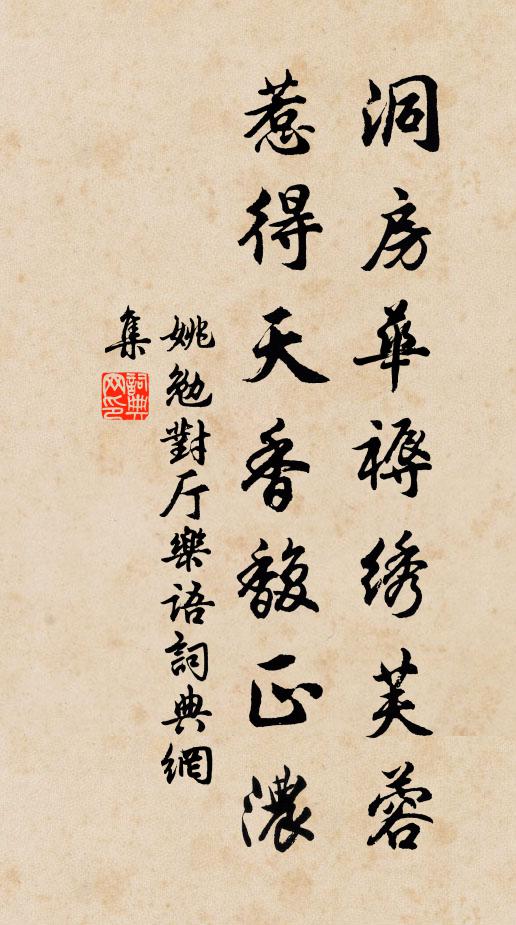 洞房華褥绣芙蓉
惹得天香馥正濃
姚勉對厅樂語詞典網
集
詞典
网印